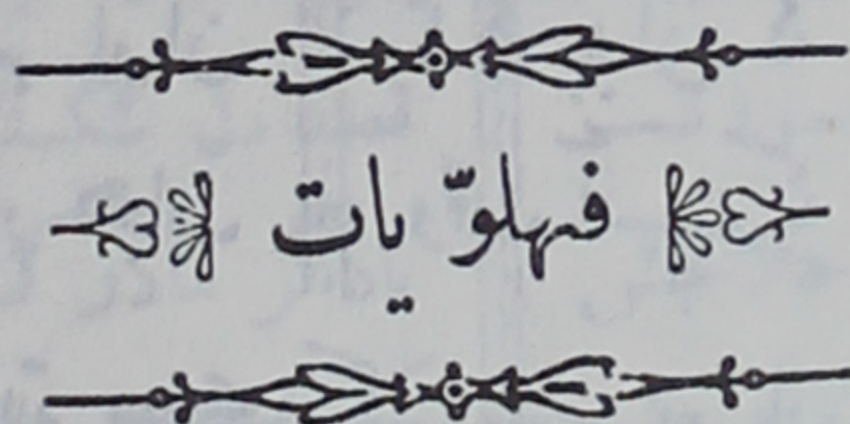 فهلوّیات